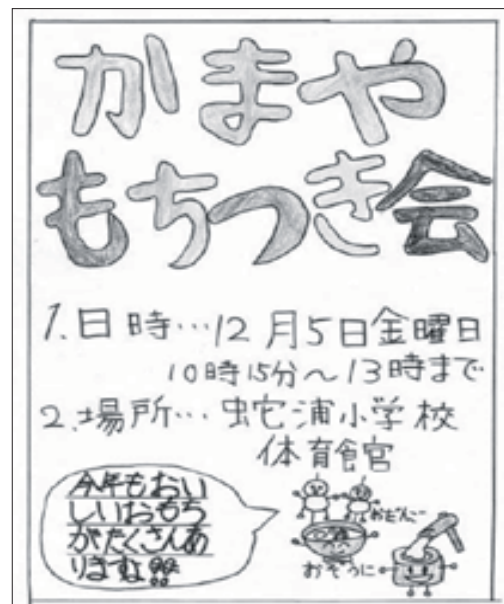 かまや
もちつき会
1.日時…12月5日金曜日
10時15分〜13時まで
2.場所…蛇浦小学校
体育館
今年もおい
しいおもち
がたくさんあ
りますよ!!
おだんご
おぞうに